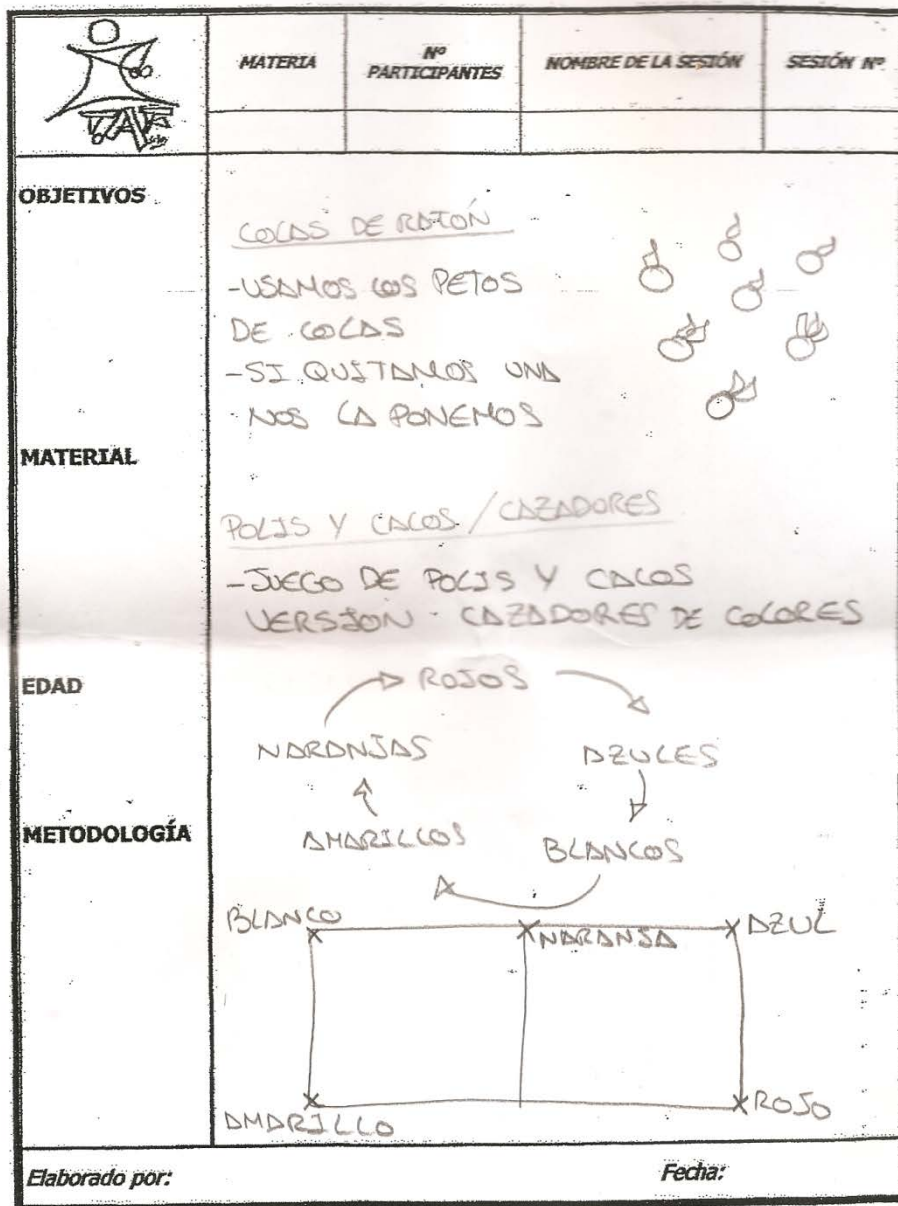 MATERIA
Nº PARTICIPANTES
NOMBRE DE LA SESIÓN
SESIÓN Nº
OBJETIVOS
COLAS DE RATÓN
-USAMOS LOS PETOS
DE COLAS
-SI QUITAMOS UNA
NOS LA PONEMOS
MATERIAL
POLIS Y CACOS / CAZADORES
-JUEGO DE POLIS Y CACOS
VERSION CAZADORES DE COLORES
EDAD
ROJOS
NARANJAS
AZULES
METODOLOGÍA
AMARILLOS
BLANCOS
BLANCO
NARANJA
AZUL
AMARILLO
ROJO
Elaborado por:
Fecha: